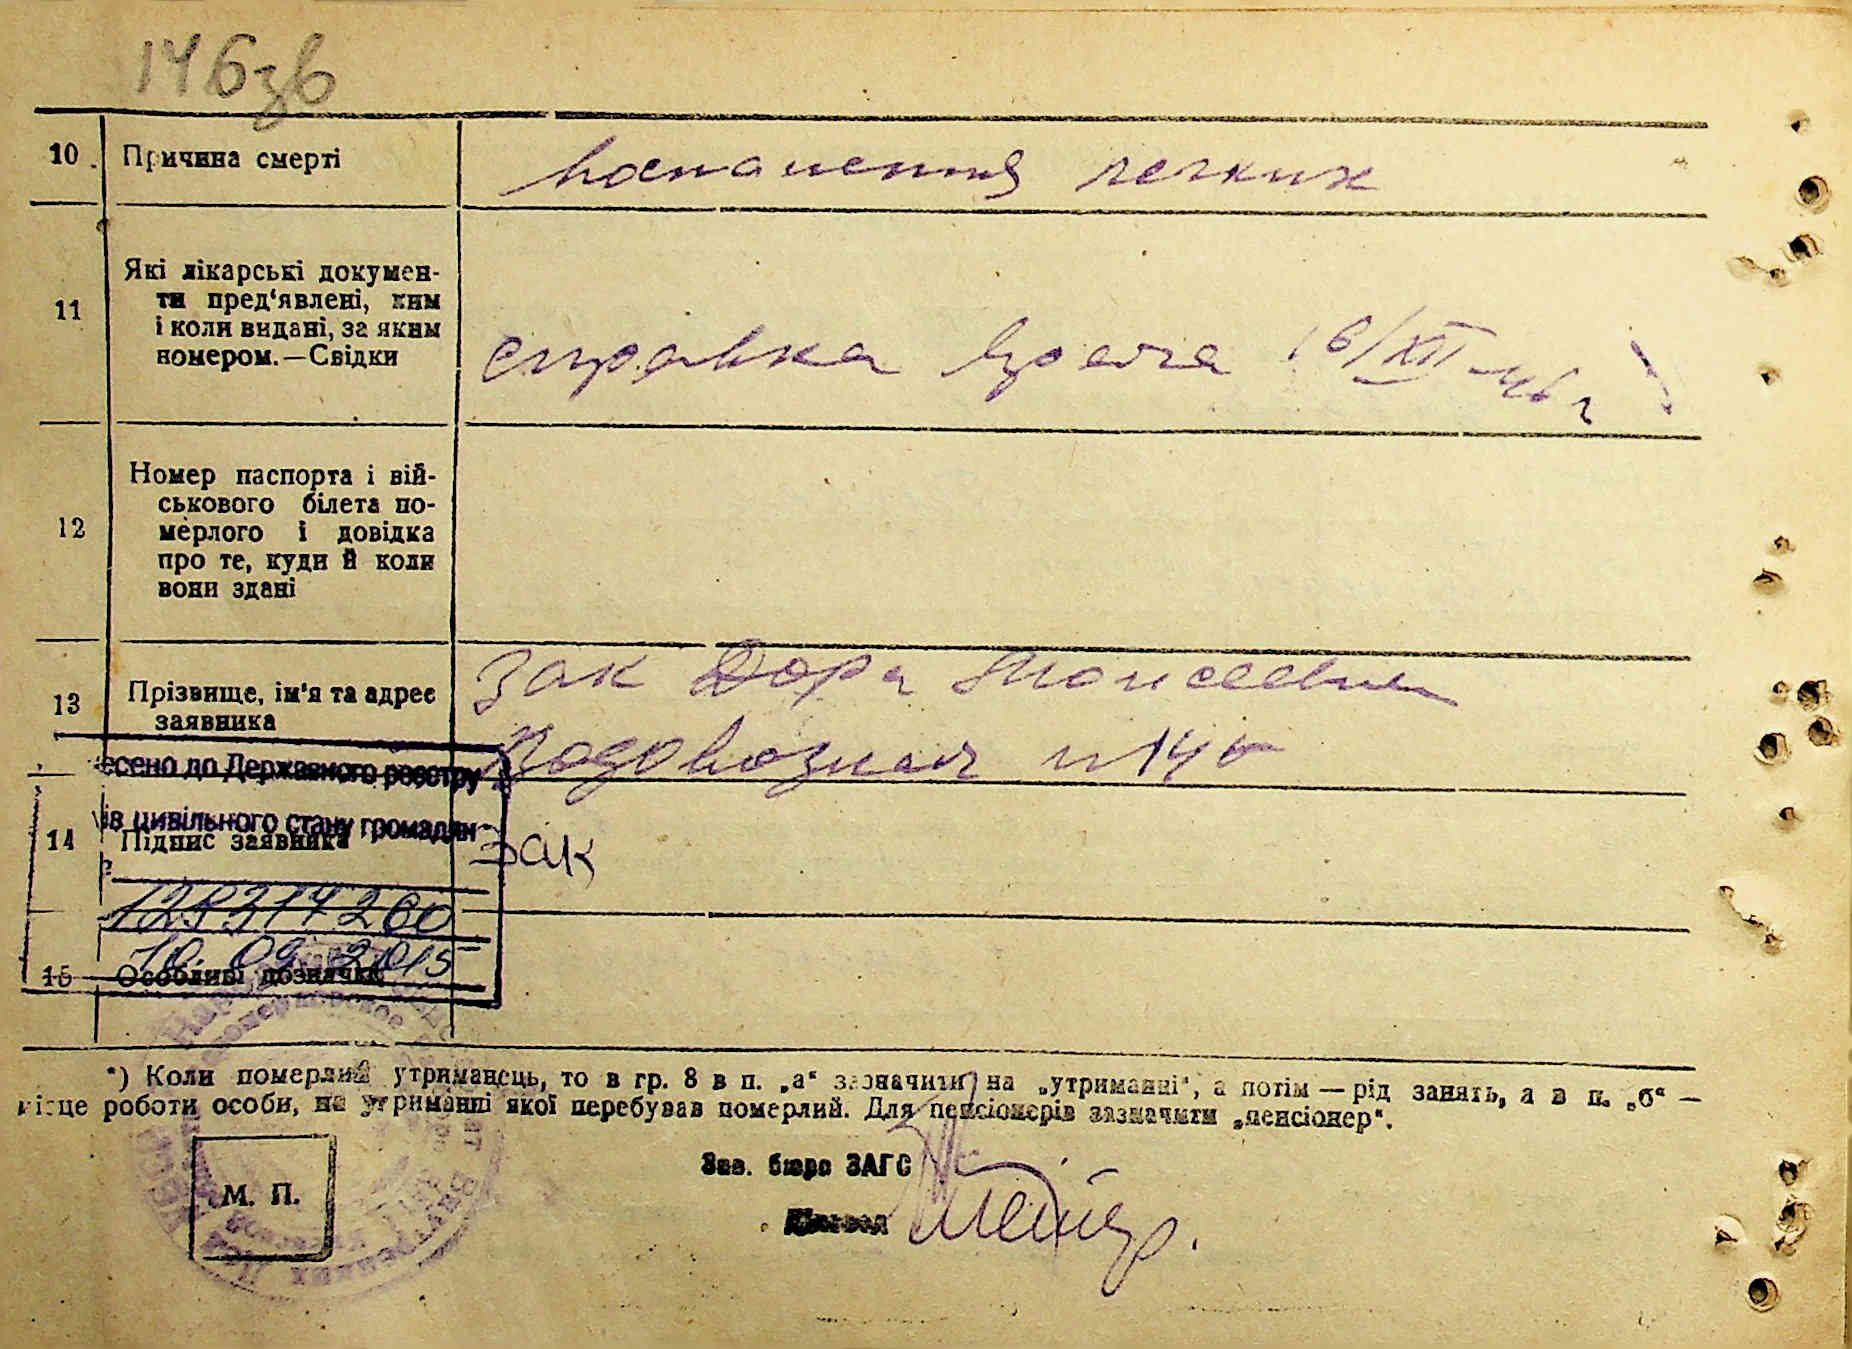 146зв
10. Причина смерті
воспаления легких
11 Які лікарські докумен-
ти пред'явлені, ким
і коли видані, за яким
номером.—Свідки
справка врача 16/XII-46 г
12 Номер паспорта і вій-
ськового білета по-
мерлого і довідка
про те, куди й коли
вони здані
13 Прізвище, ім'я та адрес
заявника
Зак Дора Моисеевна
Водовозная н 14
есено до Державного реєстру
ів цивільного стану громадян
14 Підпис заявника
Зак
10. 09. 2015
15 Особливі позначки
*) Коли померлий утриманець, то в гр. 8 в п. „а“ зазначити на „утриманні“, а потім — рід занять, а в п. „б“ —
місце роботи особи, на утриманні якої перебував померлий. Для пенсіонерів зазначити „пенсіонер“.
Зав. бюро ЗАГС
М. П.